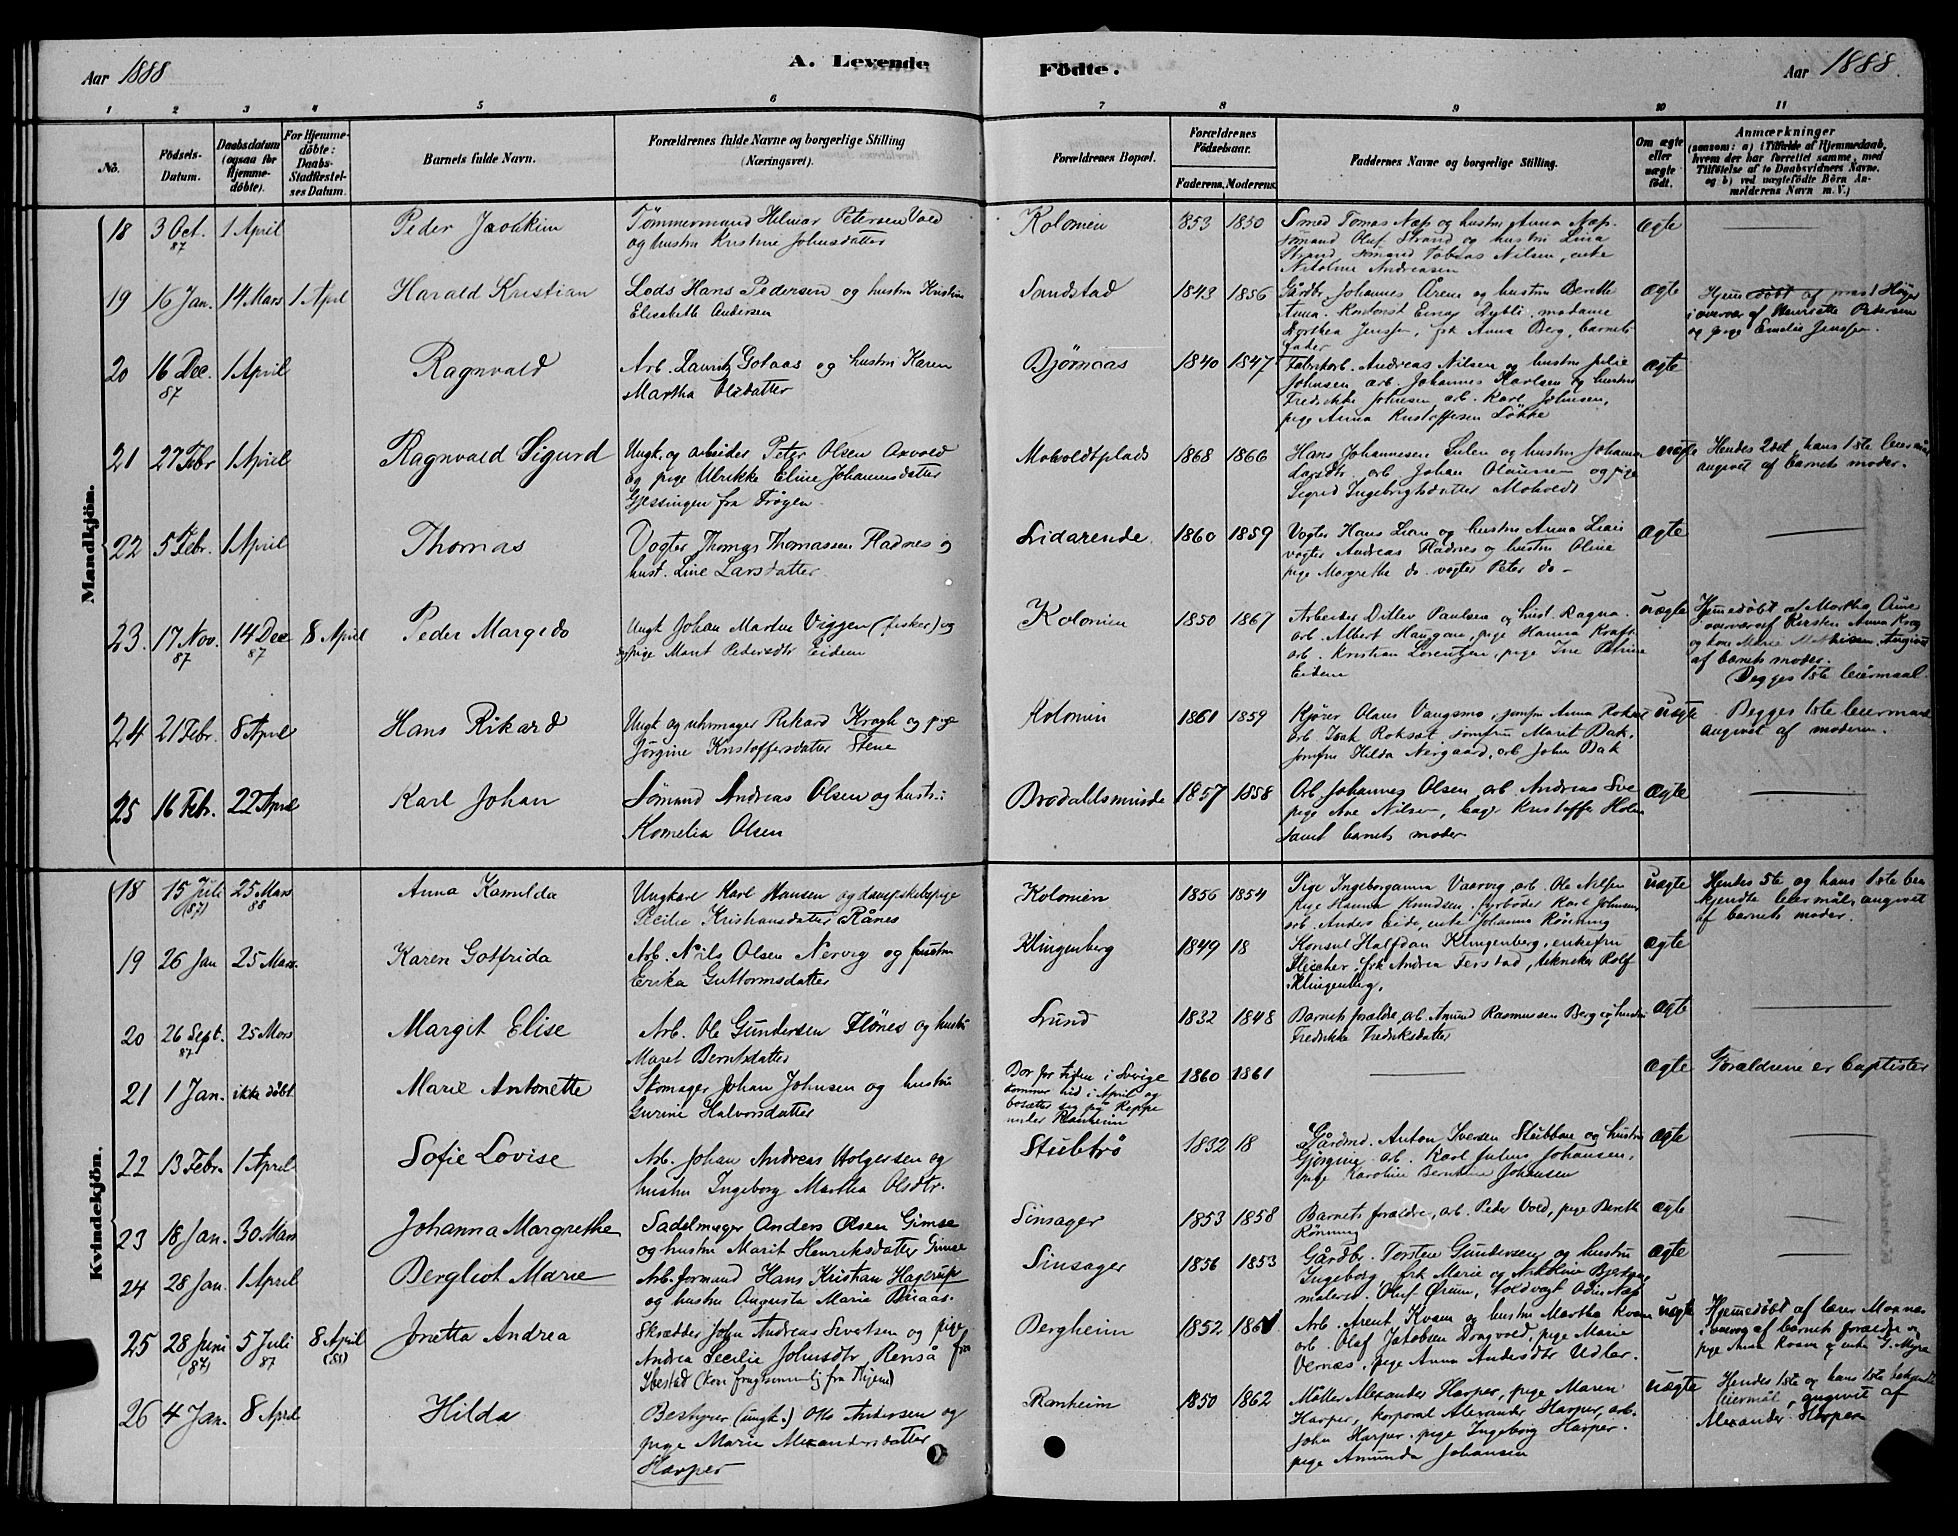 Aar 1888
A. Levende
Födte.
Aar 1888.
1 2 3 4 5 6 7 8 9 10 11
No.
Födsels-
Datum.
Daabsdatum
(ogsaa for
Hjemme-
döbte).
For Hjemme-
döbte:
Daabs-
Stadfæstel-
ses Datum.
Barnets fulde Navn.
Forældrenes fulde Navne og borgerlige Stilling
(Næringsvei).
Forældrenes Bopæl.
Forældrenes
Födselsaar.
Faderens. Moderens.
Faddernes Navne og borgerlige Stilling.
Om ægte
eller
uægte
födt.
Anmærkninger
(saasom: a) i Tilfælde af Hjemmedaab,
hvem der har forrettet samme, med
Tilföielse af to Daabsvidners Navne,
og b) ved uægtefödte Börn An-
melderens Navn m. V.)
Mandkjön.
18 3 Oct. 87 1 April
Peder Joakim
Tömmermand Hilmar Petersen Vold
og hustru Kristine Johnsdatter
Kolonien 1853 1850
Smed Tomas Næs og hustru Anna Næs.
sömand Oluf Strand og hustru Lina
Strand, sömand Tobias Nilsen, enke
Nikoline Andreasen
ægte
19 16 Jan. 14 Mars 1 April
Harald Kristian
Lods Hans Pedersen og hustru Kristine
Elisabeth Andersen
Sandstad 1843 1856
Gårdbr. Johannes Örene og hustru Berette
Anna. Einar Dybli. madame
Dorthea Jenssen, frk Anna Berg, barnets
fader
ægte
Hjemedöbt af præst Höyer
i overvær af Henriette Pedersen
og pige Emelie Jenssen.
20 16 Dec. 87 1 April
Ragnvald
Arb. Lauritz Golaas og hustru Karen
Martha Olsdatter
Bjørnaas 1840 1847
Fabrikarb. Andreas Nilsen og hustru Julie
Johnsen arb. Johannes Karlsen og hustru
Fredrikke Johnsen, arb. Karl Johnsen,
pige Anna Kristoffersen Løkke
ægte
21 27 Febr 1 April
Ragnvald Sigurd
Ungk. og arbeider Peter Olsen Axvold
og pige Ulrikke Eline Johannesdatter
Gjessingen fra Frøyen
Moholdtplads 1868 1866
Hans Johannesen Sulen og hustru Johanna
Larsdtr, arb. Johan Olaussen og pige
Sigrid Ingebrigtsdatter Moholdt
uægte
Hendes 2det, hans 1ste leiermål
angivet af barnets moder.
22 5 Febr. 1 April
Thomas
Vogter Thomas Thomassen Fladnes og
hust. Line Larsdatter
Lidarende. 1860 1859
Vogter Hans Lian og hustru Anna Lian
vogter Andreas Fladnes og hustru Olina
pige Margrethe do. vogter Peter do-
ægte
23. 17 Nov. 87 14 Dec 87 8 April
Peder Margido
Ungk. Johan Martin Viggen (fisker) og
pige Marit Pedersdtr Eidem
Kolonien 1850 1867
Arbeider Ditlev Paulsen og hust. Ragna.
arb. Albert Haugan, pige Hanna Kraft
arb. Kristian Lorentzen, pige Ine Petrine
Eidem
uægte
Hjemedöbt af Martha Aune
i overvær af Kirsten Anna Krog
og kone Marie Mathisen. Angivet
af barnets moder.
Begges 1ste leiermaal.
24 21 Febr. 8 April
Hans Rikard
Ungk og uhrmager Rikard Kragh og pige
Jørgine Kristoffersdatter Stene
Kolonien 1861 1859
Kjører Olaus Vangsmo, jomfru Anna Roksæt
arb. Isak Roksæt jomfru Marit Bak,
jomfru Hilda Nergaard, arb. John Bak
uægte
Begges 1ste leiermaal
angivet af moderen.
25 16 Febr. 22 April
Karl Johan
Sømand Andreas Olsen og hustru
Kornelia Olsen
1857 1858
Arb. Johannes Olsen, arb Andreas
pige Ane Nilsen, bager Kristoffer Holm
samt barnets moder
ægte
Kvindekjön.
18 15 Juli (87) 25 Mars 88
Anna Kamilda
Ungkarl Karl Hansen og dampskibspige
Cecilie Kristiansdatter Rånes
Kolonien 1856 1854
Pige Ingeborganna Vaarvig, arb. Ole Nilsen
pige Hanna Knudsen, fyrböder Karl Johnsen,
arb. Anders Eide, enke Johanna Rönning
uægte
Hendes 5te og hans 1ste be-
kjendte leiermål, angivet
af barnets moder.
19 26 Jan 25 Mars.
Karen Gotfrida
Arb. Nils Olsen Nervig og hustru
Erika Guttormsdatter
Klingenberg 1849 18
Konsul Halfdan Klingenberg, enkefru
Fleischer, frk Andrea Ferstad, tekniker Rolf
Klingenberg.
ægte
20 26 Sept. 87 25 Mars
Margit Elise
Arb. Ole Gundersen Flönes og hustru
Maret Berntsdatter
Lund 1832 1848
Barnets forældre, arb. Amund Rasmussen Berg og hustru
Fredrikke Fredriksdatter
ægte
21 1 Jan. ikke döbt
Marie Antonette
Skomager Johan Johnsen og hustru
Gurine Halvorsdatter
Bor for tiden i Sverige
kommer hid i April og
bosætter sig på Reppe
under Ranheim
1860 1861
ægte
Forældrene er baptister
22 13 Febr. 1 April
Sofie Lovise
Arb. Johan Andreas Holgersen og
hustru Ingeborg Martha Olsdtr.
Stubtrø 1832 18
Gårdmd. Anton Iversen Stubban og hustru
Gjørgine. arb. Karl Julius Johansen,
pige Karoline Berntine Johansen
ægte
23 18 Jan. 30 Mars
Johanna Margrethe
Sadelmager Anders Olsen Gimse
og hustru Marit Henriksdatter Gimse
Sinsager 1853 1858
Barnets forældre, arb. Peder Vold, pige Berith
Rönning
ægte
24 28 Jan. 1 April
Bergliot Marie
Arb. formand Hans Kristian Hagerup
og hustru Augusta Marie Buaas.
Sinsager 1856 1853
Gårdbr. Torsten Gundersen og hustru
Ingeborg, frk Marie og
maler Oluf Ørum, toldvagt Odin Næs
ægte
25 28 Juni (87) 5 Juli 87 8 April (88)
Jonetta Andrea
Skrædder John Andreas Sivertsen og pige
Andrea Cecilie Johnsdtr. Renså fra
Ibestad (kom
Bergheim 1852 1861
Arb. Arent Kvam og hustru Martha Kvam
arb. Olaf Jakobsen Dragvold, pige Marie
Vernes, pige Anna Andersdtr Udler.
uægte
Hjemedöbt af lærer Moxnes
i overvær af barnets forældre og
pige Anna Kvam og enke G. Myra
26 4 Jan. 8 April
Hilda
Bestyrer (ungk.) Otto Andersen og
pige Marie Alexandersdatter
Harper
Ranheim 1850 1862
Møller Alexander Harper, pige Maren
Harper, korporal Alexander Harper, arb.
John Harper. pige Ingeborg Harper.
pige Amunda Johansen
uægte
Hendes 1ste og hans 1ste bekjendte
leiermål, angivet af
Alexander Harper